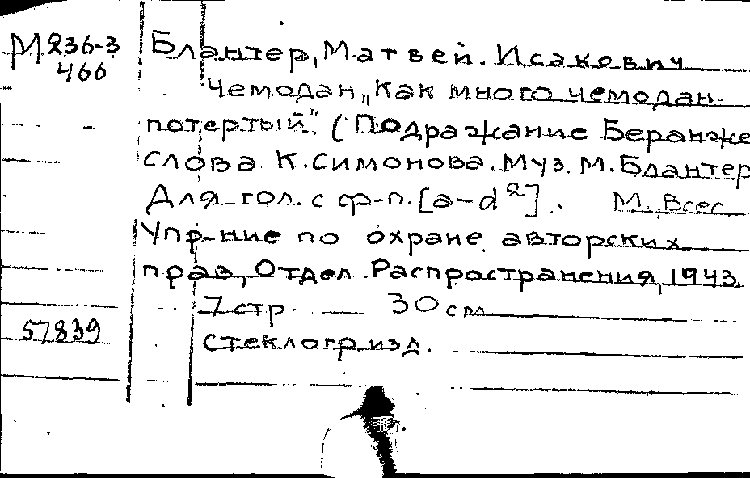 М 236-3
466
Блантер, Матвей. Исакович
Чемодан „Как много чемодан
потертый". (Подражание Беранже
слова К. Симонова. Муз. М. Блантер
Для гол. с ф-п. [a-d²]. М. Всес
Упр-ние по охране авторских
прав, Отдел Распространения, 1943.
7 стр 30 см
57839
стеклогр. изд.